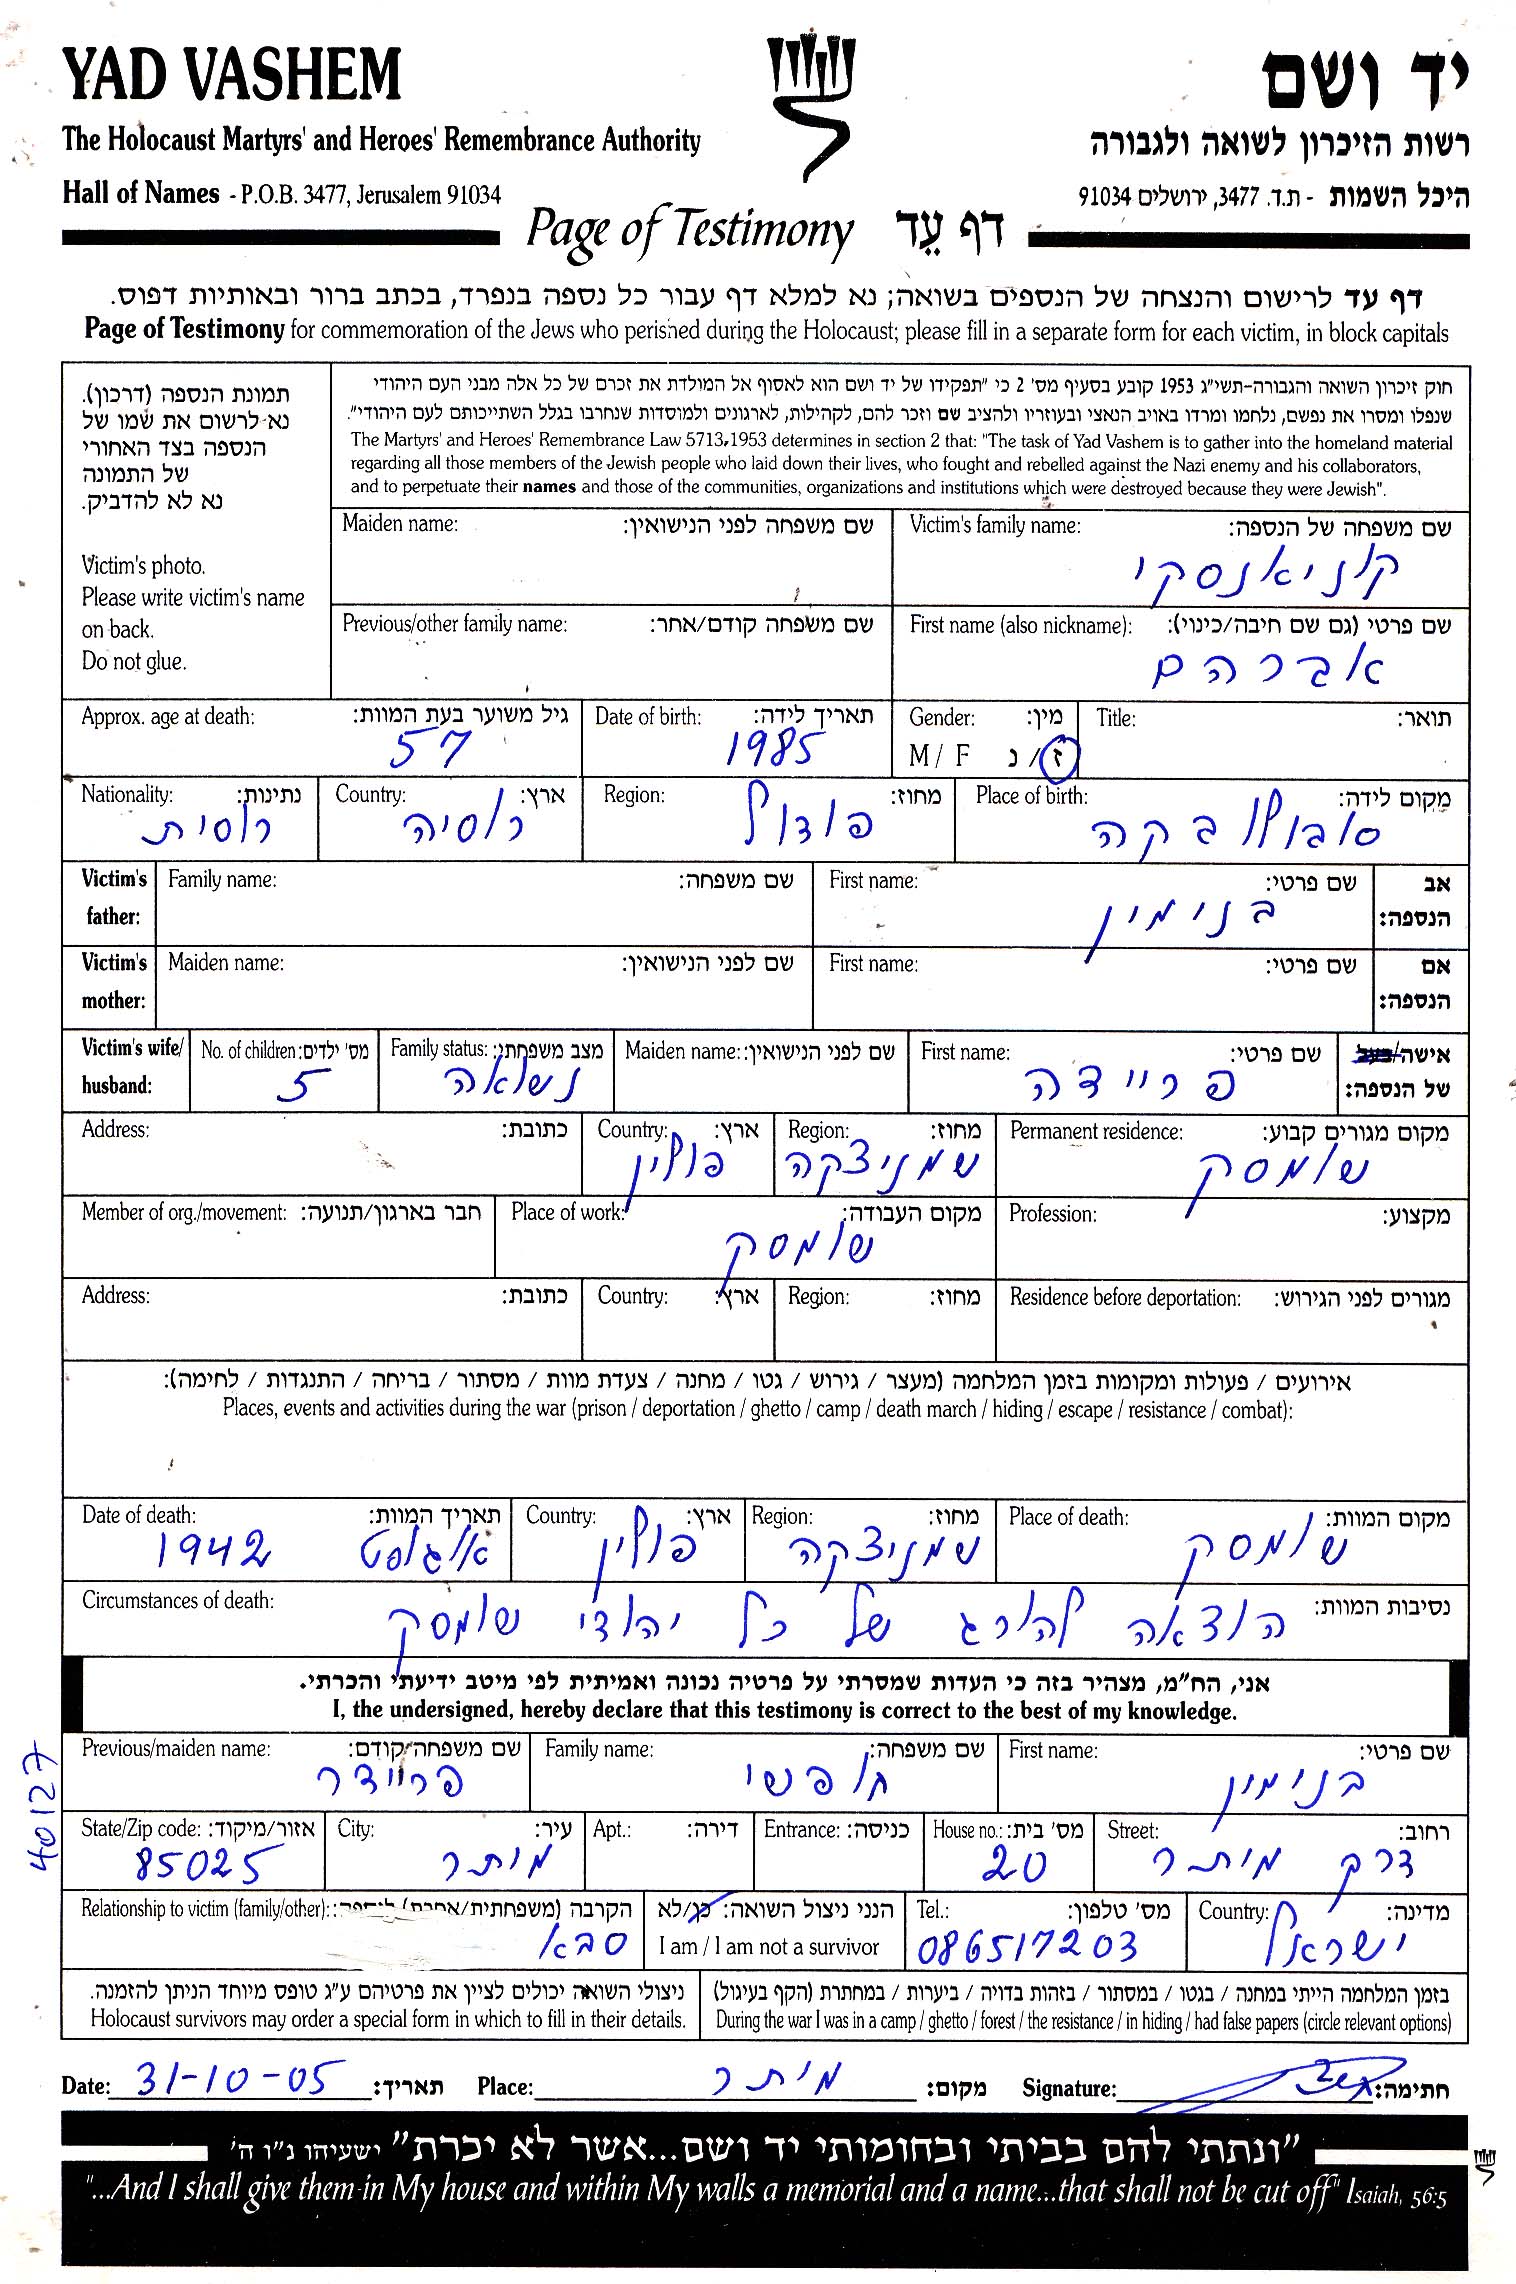 YAD VASHEM
יד ושם
The Holocaust Martyrs' and Heroes' Remembrance Authority
רשות הזיכרון לשואה ולגבורה
Hall of Names - P.O.B. 3477, Jerusalem 91034
היכל השמות - ת.ד. 3477, ירושלים 91034
Page of Testimony דף עֵד
דף עד לרישום והנצחה של הנספים בשואה; נא למלא דף עבור כל נספה בנפרד, בכתב ברור ובאותיות דפוס.
Page of Testimony for commemoration of the Jews who perished during the Holocaust; please fill in a separate form for each victim, in block capitals
תמונת הנספה (דרכון).
נא לרשום את שמו של
הנספה בצד האחורי
של התמונה
נא לא להדביק.
Victim's photo.
Please write victim's name
on back.
Do not glue.
חוק זיכרון השואה והגבורה-תשי״ג 1953 קובע בסעיף מס' 2 כי ״תפקידו של יד ושם הוא לאסוף אל המולדת את זכרם של כל אלה מבני העם היהודי
שנפלו ומסרו את נפשם, נלחמו ומרדו באויב הנאצי ובעוזריו ולהציב שם וזכר להם, לקהילות, לארגונים ולמוסדות שנחרבו בגלל השתייכותם לעם היהודי״.
The Martyrs' and Heroes' Remembrance Law 5713,1953 determines in section 2 that: "The task of Yad Vashem is to gather into the homeland material
regarding all those members of the Jewish people who laid down their lives, who fought and rebelled against the Nazi enemy and his collaborators,
and to perpetuate their names and those of the communities, organizations and institutions which were destroyed because they were Jewish".
Victim's family name: שם משפחה של הנספה:
קוניאנסקי
Maiden name: שם משפחה לפני הנישואין:
First name (also nickname): שם פרטי (גם שם חיבה/כינוי):
אברהם
Previous/other family name: שם משפחה קודם/אחר:
Title: תואר:
Gender: מין:
M / F ז/נ
Date of birth: תאריך לידה:
1985
Approx. age at death: גיל משוער בעת המוות:
57
Place of birth: מקום לידה:
סובולובקה
Region: מחוז:
פודול
Country: ארץ:
רוסיה
Nationality: נתינות:
רוסית
Victim's father: אב הנספה:
First name: שם פרטי:
בנימין
Family name: שם משפחה:
Victim's mother: אם הנספה:
First name: שם פרטי:
Maiden name: שם לפני הנישואין:
Victim's wife/ husband: אישה/בעל של הנספה:
First name: שם פרטי:
פריידה
Maiden name: שם לפני הנישואין:
Family status: מצב משפחתי:
נשואה
No. of children: מס' ילדים:
5
Permanent residence: מקום מגורים קבוע:
שומסק
Region: מחוז:
שמניצקה
Country: ארץ:
פולין
Address: כתובת:
Profession: מקצוע:
Place of work: מקום העבודה:
שומסק
Member of org./movement: חבר בארגון/תנועה:
Residence before deportation: מגורים לפני הגירוש:
Region: מחוז:
Country: ארץ:
Address: כתובת:
אירועים / פעולות ומקומות בזמן המלחמה (מעצר / גירוש / גטו / מחנה / צעדת מוות / מסתור / בריחה / התנגדות / לחימה):
Places, events and activities during the war (prison / deportation / ghetto / camp / death march / hiding / escape / resistance / combat):
Place of death: מקום המוות:
שומסק
Region: מחוז:
שמניצקה
Country: ארץ:
פולין
Date of death: תאריך המוות:
אוגוסט 1942
Circumstances of death: נסיבות המוות:
הוצאה להורג של כל יהודי שומסק
אני, הח״מ, מצהיר בזה כי העדות שמסרתי על פרטיה נכונה ואמיתית לפי מיטב ידיעתי והכרתי.
I, the undersigned, hereby declare that this testimony is correct to the best of my knowledge.
First name: שם פרטי:
בנימין
Family name: שם משפחה:
חופשי
Previous/maiden name: שם משפחה קודם:
פריידר
Street: רחוב:
דרך מיתר
House no.: מס' בית:
20
Entrance: כניסה:
Apt.: דירה:
City: עיר:
מיתר
State/Zip code: אזור/מיקוד:
85025
40127
Country: מדינה:
ישראל
Tel.: מס' טלפון:
086517203
הנני ניצול השואה: כן/לא
I am / I am not a survivor
Relationship to victim (family/other): הקרבה (משפחתית/אחרת)
סבא
בזמן המלחמה הייתי במחנה / בגטו / במסתור / בזהות בדויה / ביערות / במחתרת (הקף בעיגול)
During the war I was in a camp / ghetto / forest / the resistance / in hiding / had false papers (circle relevant options)
ניצולי השואה יכולים לציין את פרטיהם ע״ג טופס מיוחד הניתן להזמנה.
Holocaust survivors may order a special form in which to fill in their details.
Date: 31-10-05 תאריך: Place: מיתר מקום: Signature: חתימה:
״ונתתי להם בביתי ובחומותי יד ושם...אשר לא יכרת״ ישעיהו נ״ו ה'
"...And I shall give them in My house and within My walls a memorial and a name...that shall not be cut off" Isaiah, 56:5